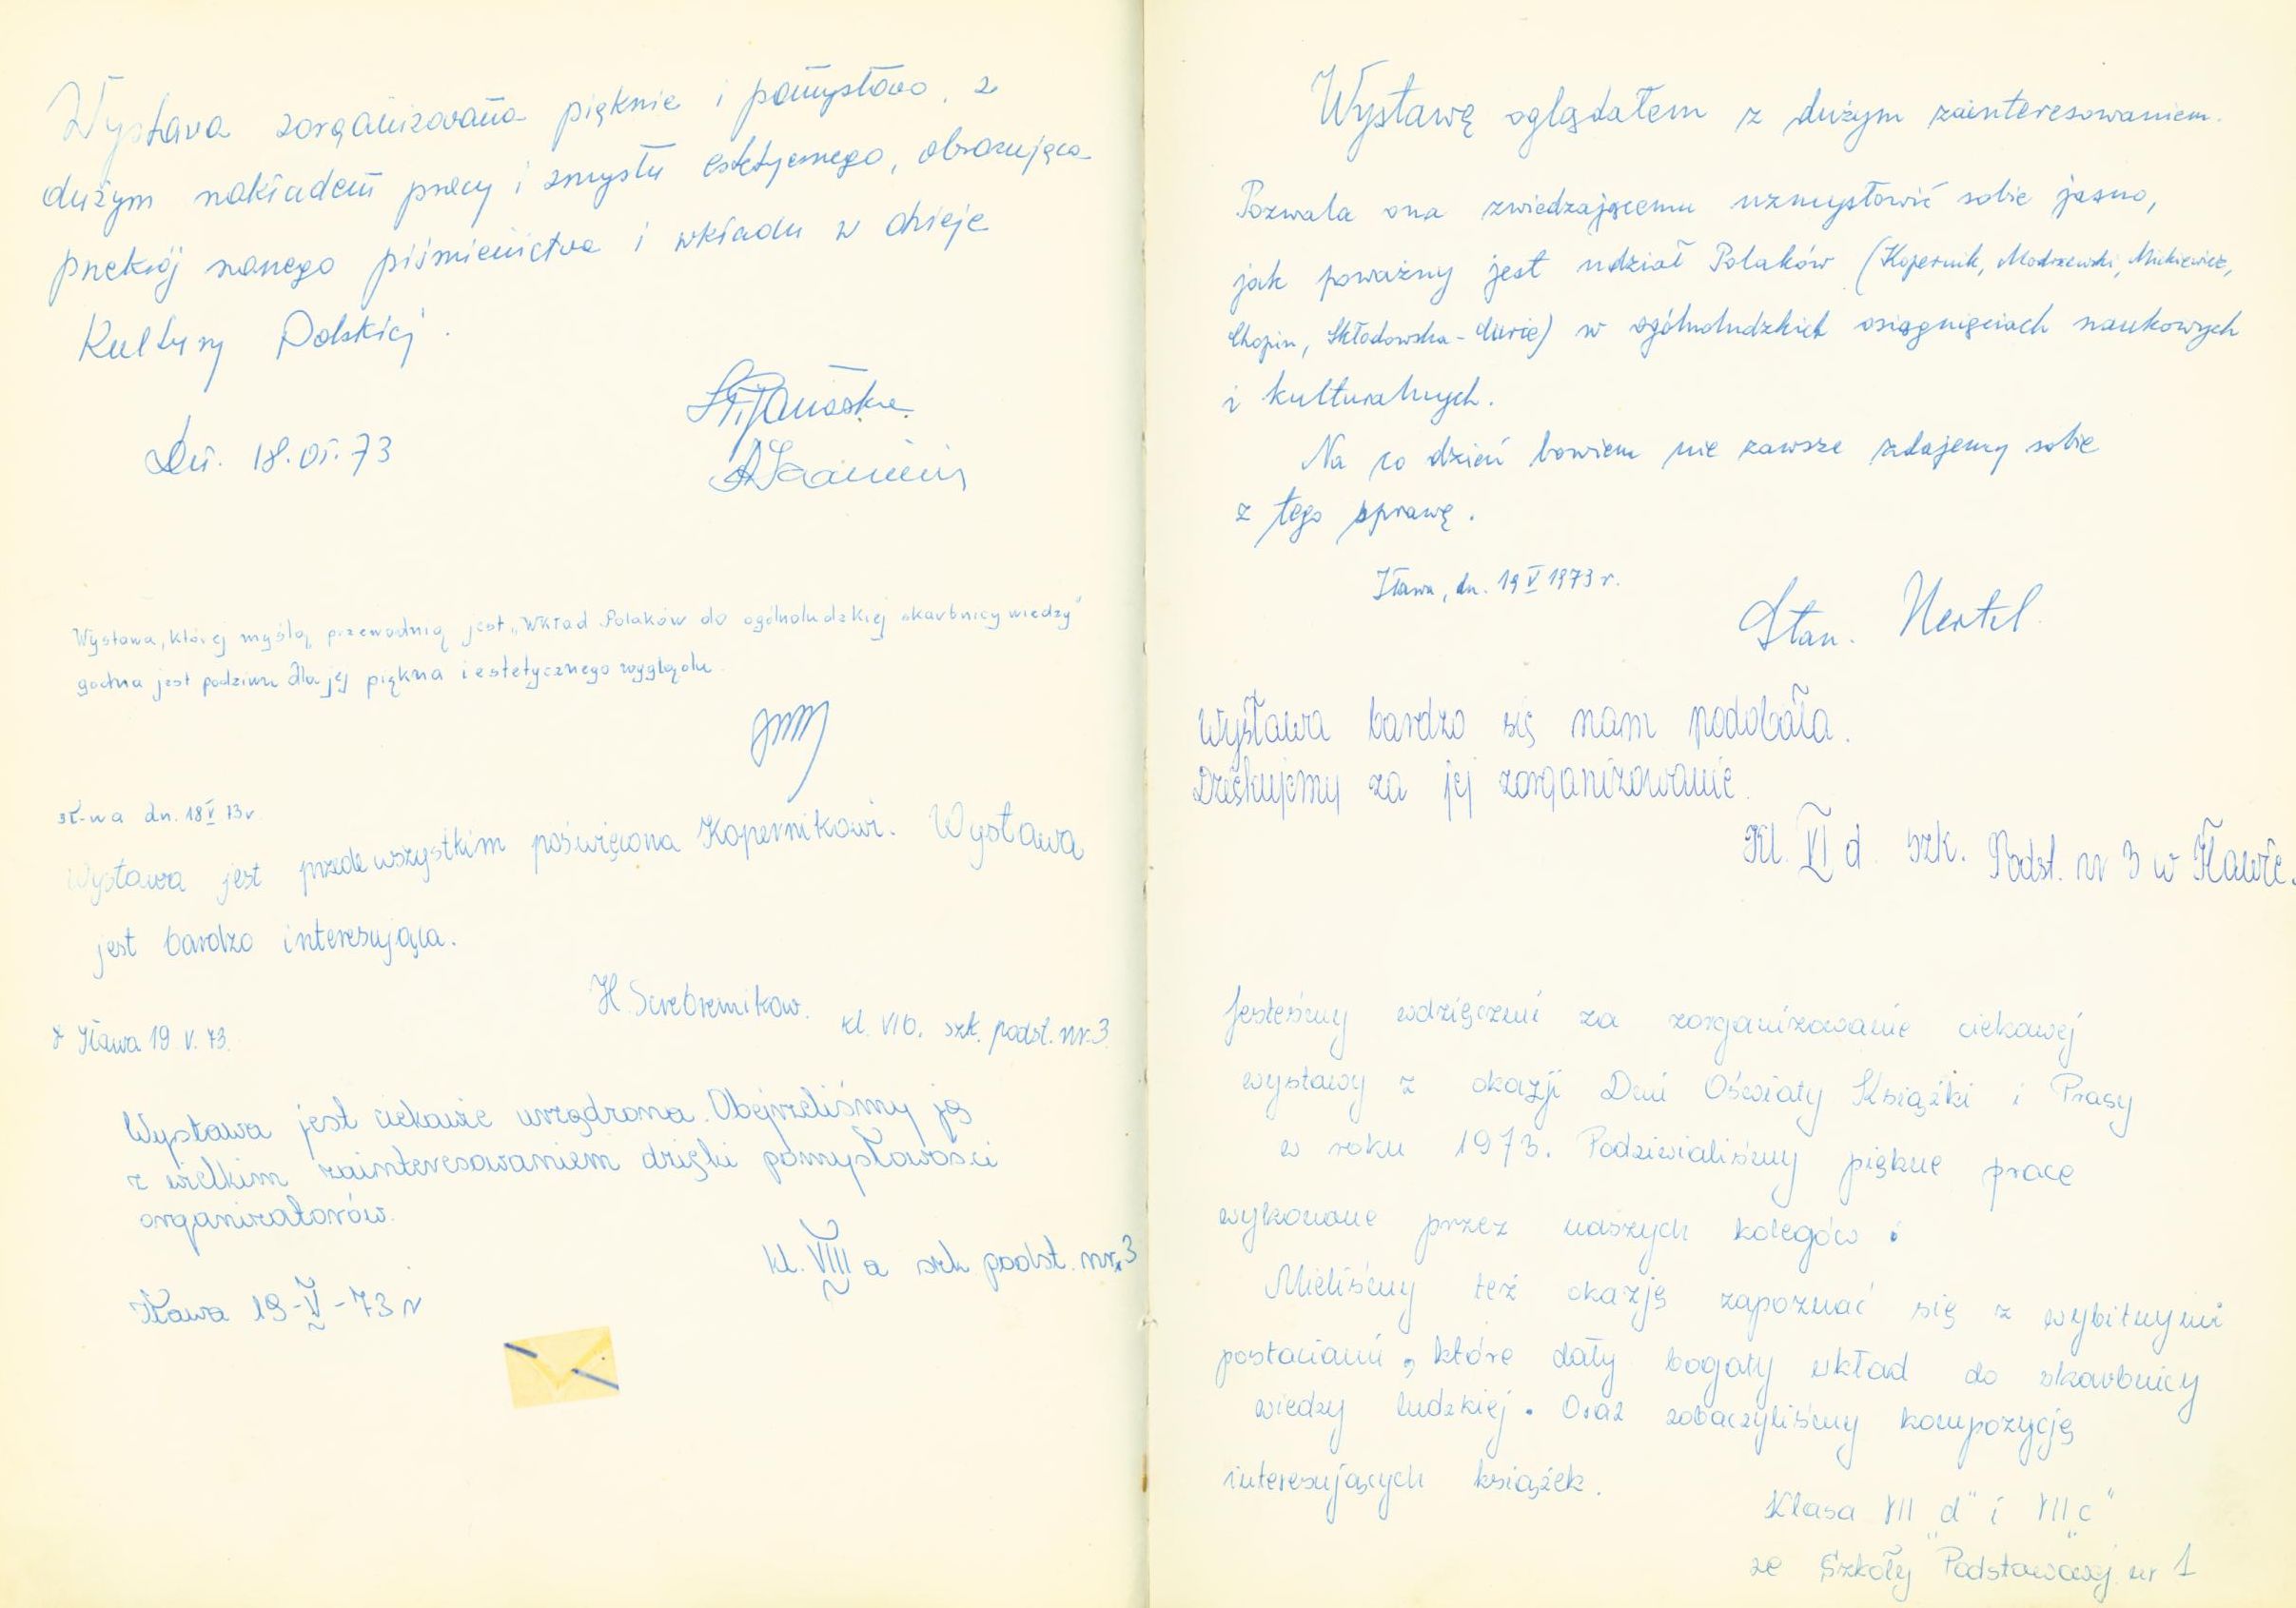 Wystawa zorganizowana pięknie i pomysłowo, z
dużym nakładem pracy i zmysłu estetycznego, obrazująca
przekrój naszego piśmiennictwa i wkładu w dzieje
Kultury Polskiej.
Dn. 18.05.73
Wystawa, której myślą przewodnią jest „Wkład Polaków do ogólnoludzkiej skarbnicy wiedzy"
godna jest podziwu dla jej piękna i estetycznego wyglądu.
Ił-wa dn. 18 V 73r.
Wystawa jest przede wszystkim poświęcona Kopernikowi. Wystawa
jest bardzo interesująca.
H. Serebrenikow.
kl. VI b. szk. podst. nr. 3
Iława 19 V. 73.
Wystawa jest ciekawie urządzona. Obejrzeliśmy ją
z wielkim zainteresowaniem dzięki pomysłowości
organizatorów.
kl. VIII a szk podst. nr. 3
Iława 19-V-73 r
Wystawę oglądałem z dużym zainteresowaniem.
Pozwala ona zwiedzającemu uzmysłowić sobie jasno,
jak poważny jest udział Polaków (Kopernik, Modrzewski, Mickiewicz,
Chopin, Skłodowska-Curie) w ogólnoludzkich osiągnięciach naukowych
i kulturalnych.
Na co dzień bowiem nie zawsze zdajemy sobie
z tego sprawę.
Iława, dn. 19 V 1973 r.
Stan. Hertel
Wystawa bardzo się nam podobała.
Dziękujemy za jej zorganizowanie.
Kl. VI d. szk. Podst. nr 3 w Iławie.
Jesteśmy wdzięczni za zorganizowanie ciekawej
wystawy z okazji Dni Oświaty Książki i Prasy
w roku 1973. Podziwialiśmy piękne prace
wykonane przez naszych kolegów.
Mieliśmy też okazję zapoznać się z wybitnymi
postaciami, które dały bogaty wkład do skarbnicy
wiedzy ludzkiej. Oraz zobaczyliśmy kompozycję
interesujących książek.
Klasa VII „d" i VII „c"
ze Szkoły Podstawowej nr 1